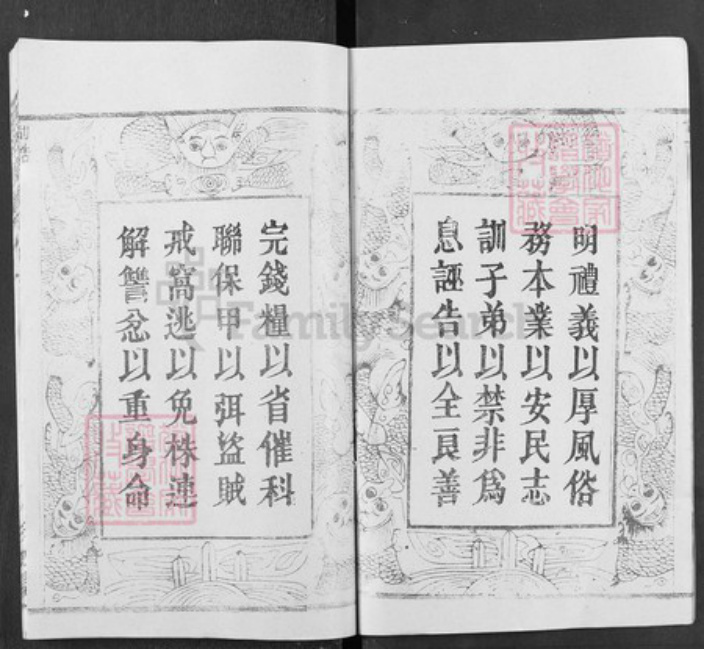 明禮義以厚風俗
務本業以安民志
訓子弟以禁非為
息誣告以全良善
完錢糧以省催科
聯保甲以弭盜賊
戒窩逃以免株連
解讐忿以重身命
FamilySearch